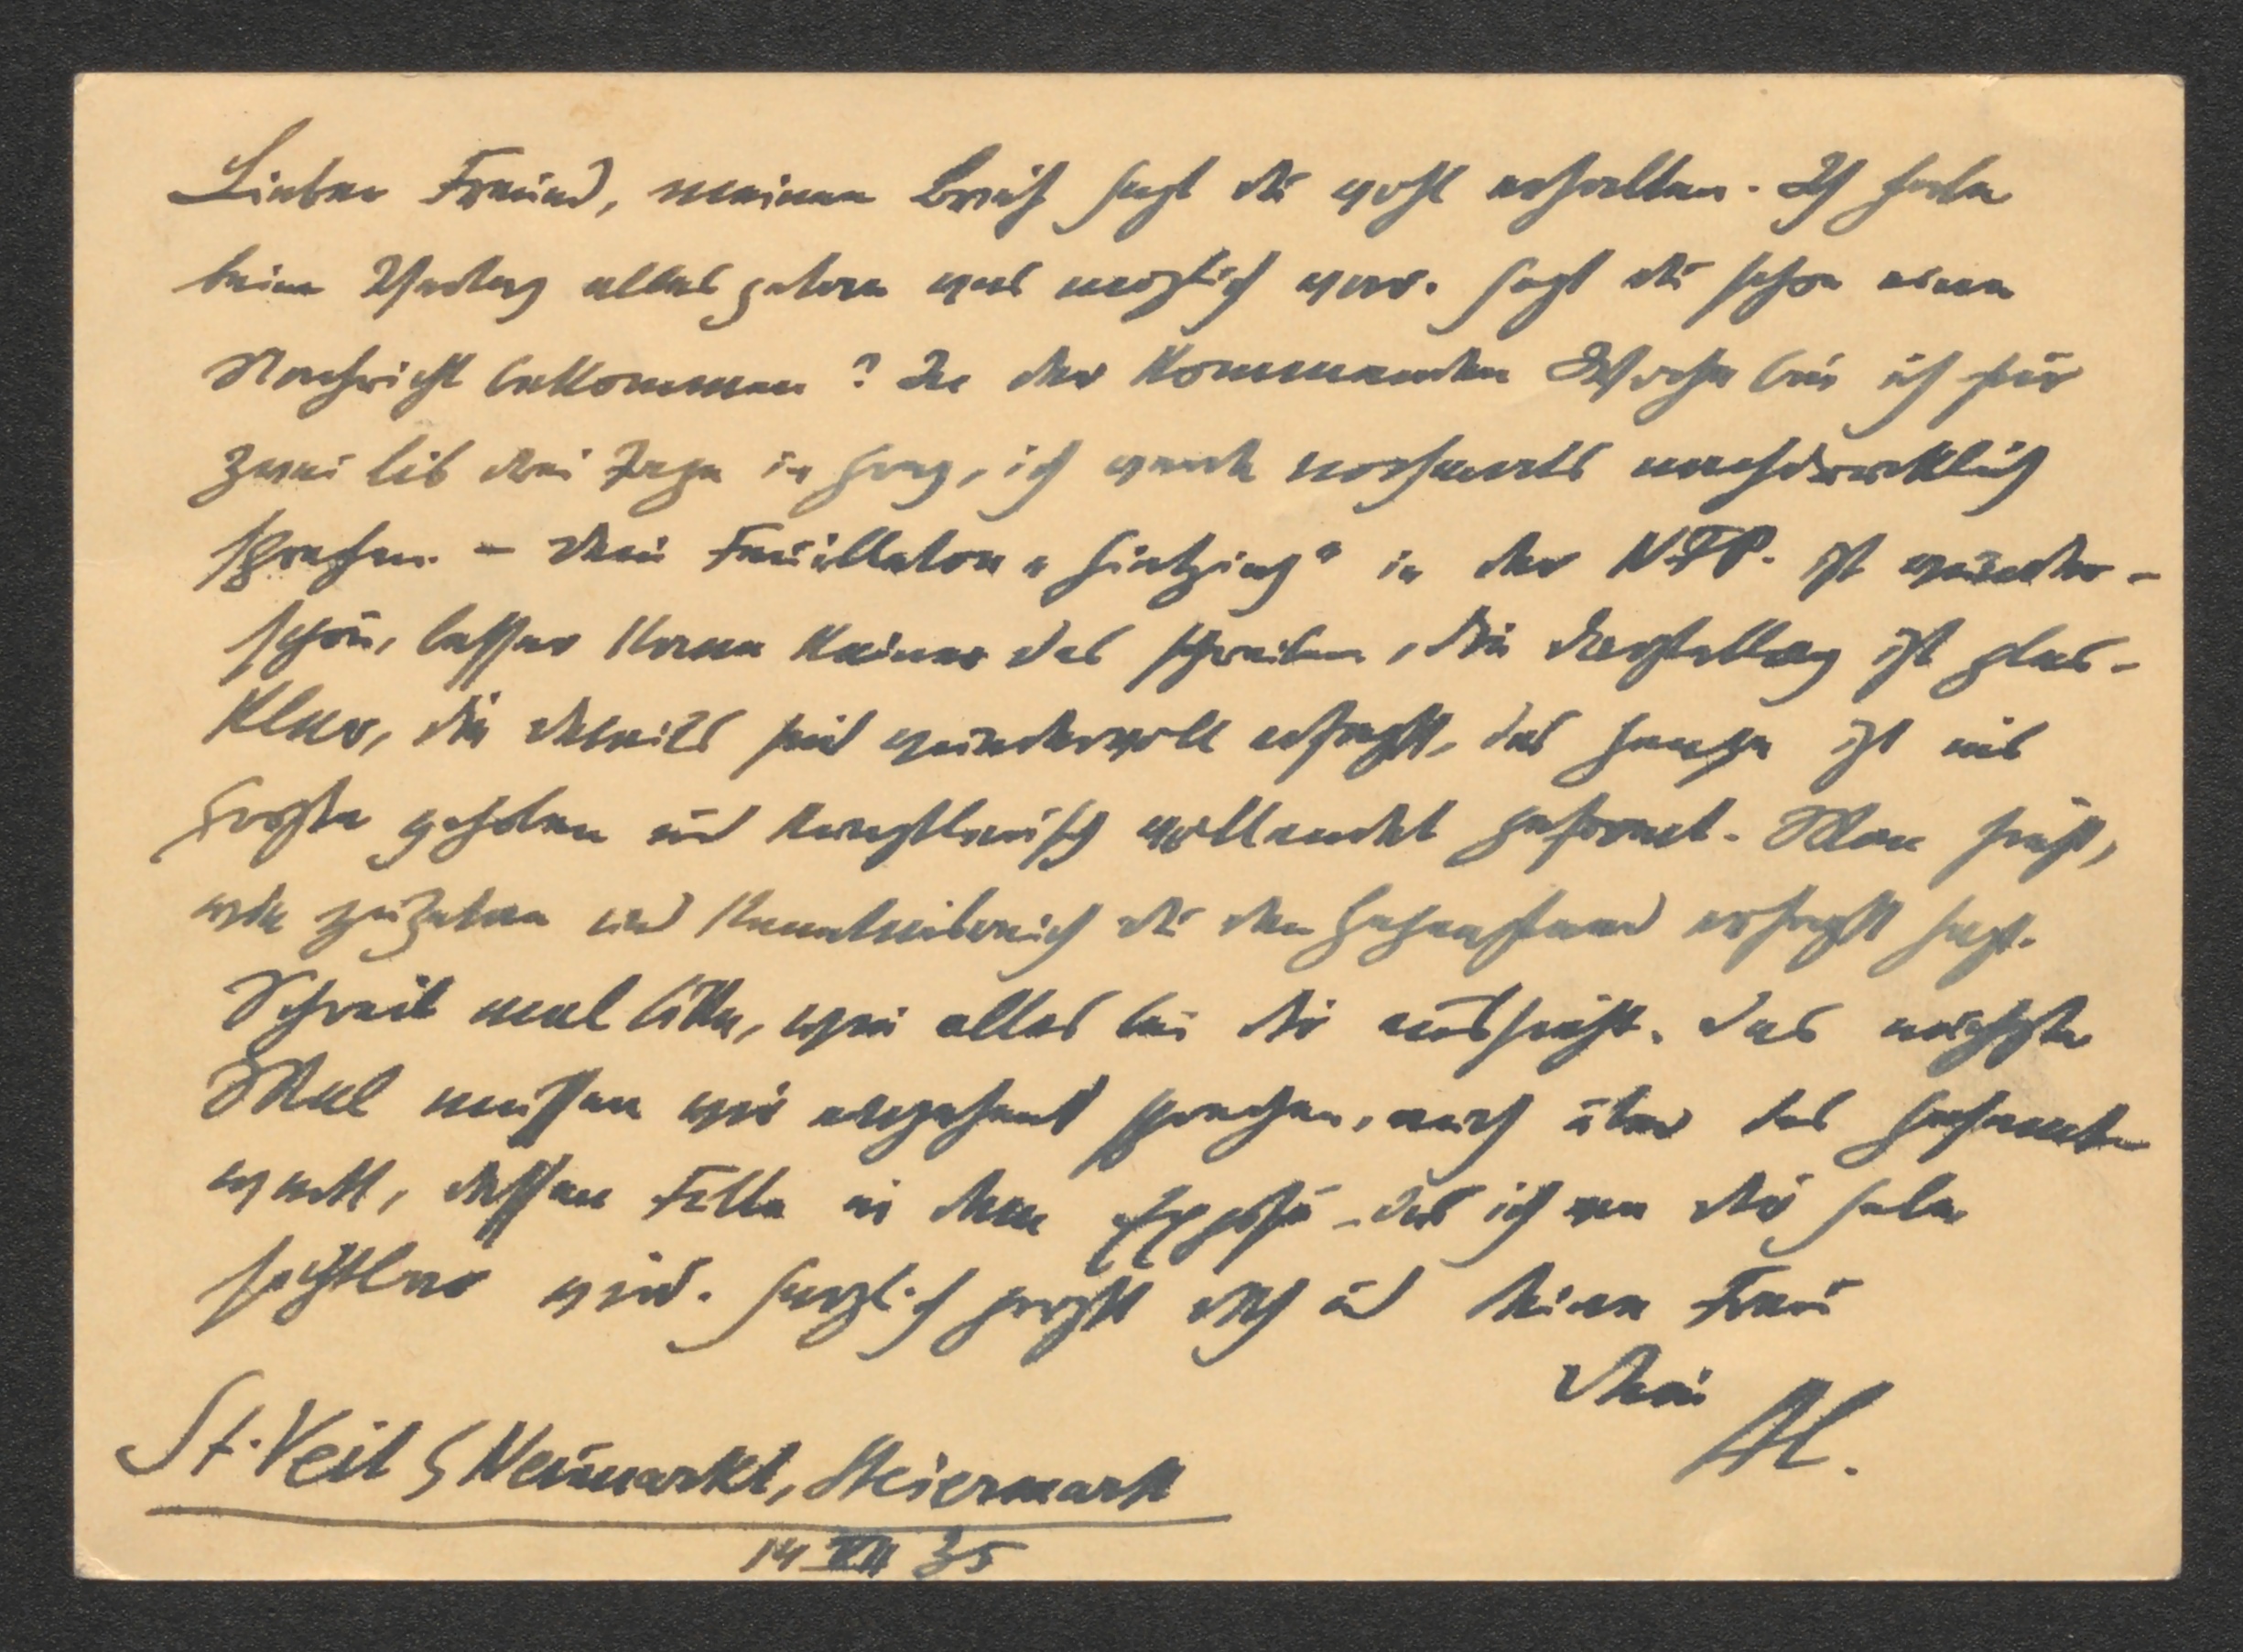 Lieber Freund, meinen Brief hast du wohl erhalten. Ich habe
beim Verlag alles getan was möglich war. Hast du schon eine
Nachricht bekommen? In der kommenden Woche bin ich für
zwei bis drei Tage in Graz, ich werde nochmals nachdrücklich
sprechen. – Dein Feuilleton „Hietzing" in der NFP. ist wunder-
schön, besser kann keiner das schreiben, die Darstellung ist glas-
klar, die Details sind wundervoll erfasst, das Ganze ist ins
Große gehoben und künstlerisch vollendet geformt. Man sieht,
wie und kenntnisreich du den Gegenstand erfasst hast.
Schreib mal bitte, wie alles bei dir aussieht. Das nächste
Mal müssen wir eingehend sprechen, auch über das Gesamt
werk, dessen Fülle in dem Exposé – das ich von dir habe
sichtbar wird. Herzlich grüßt dich und deine Frau
Dein
St. Veit b/ Neumarkt, Steiermark
14 VII 35